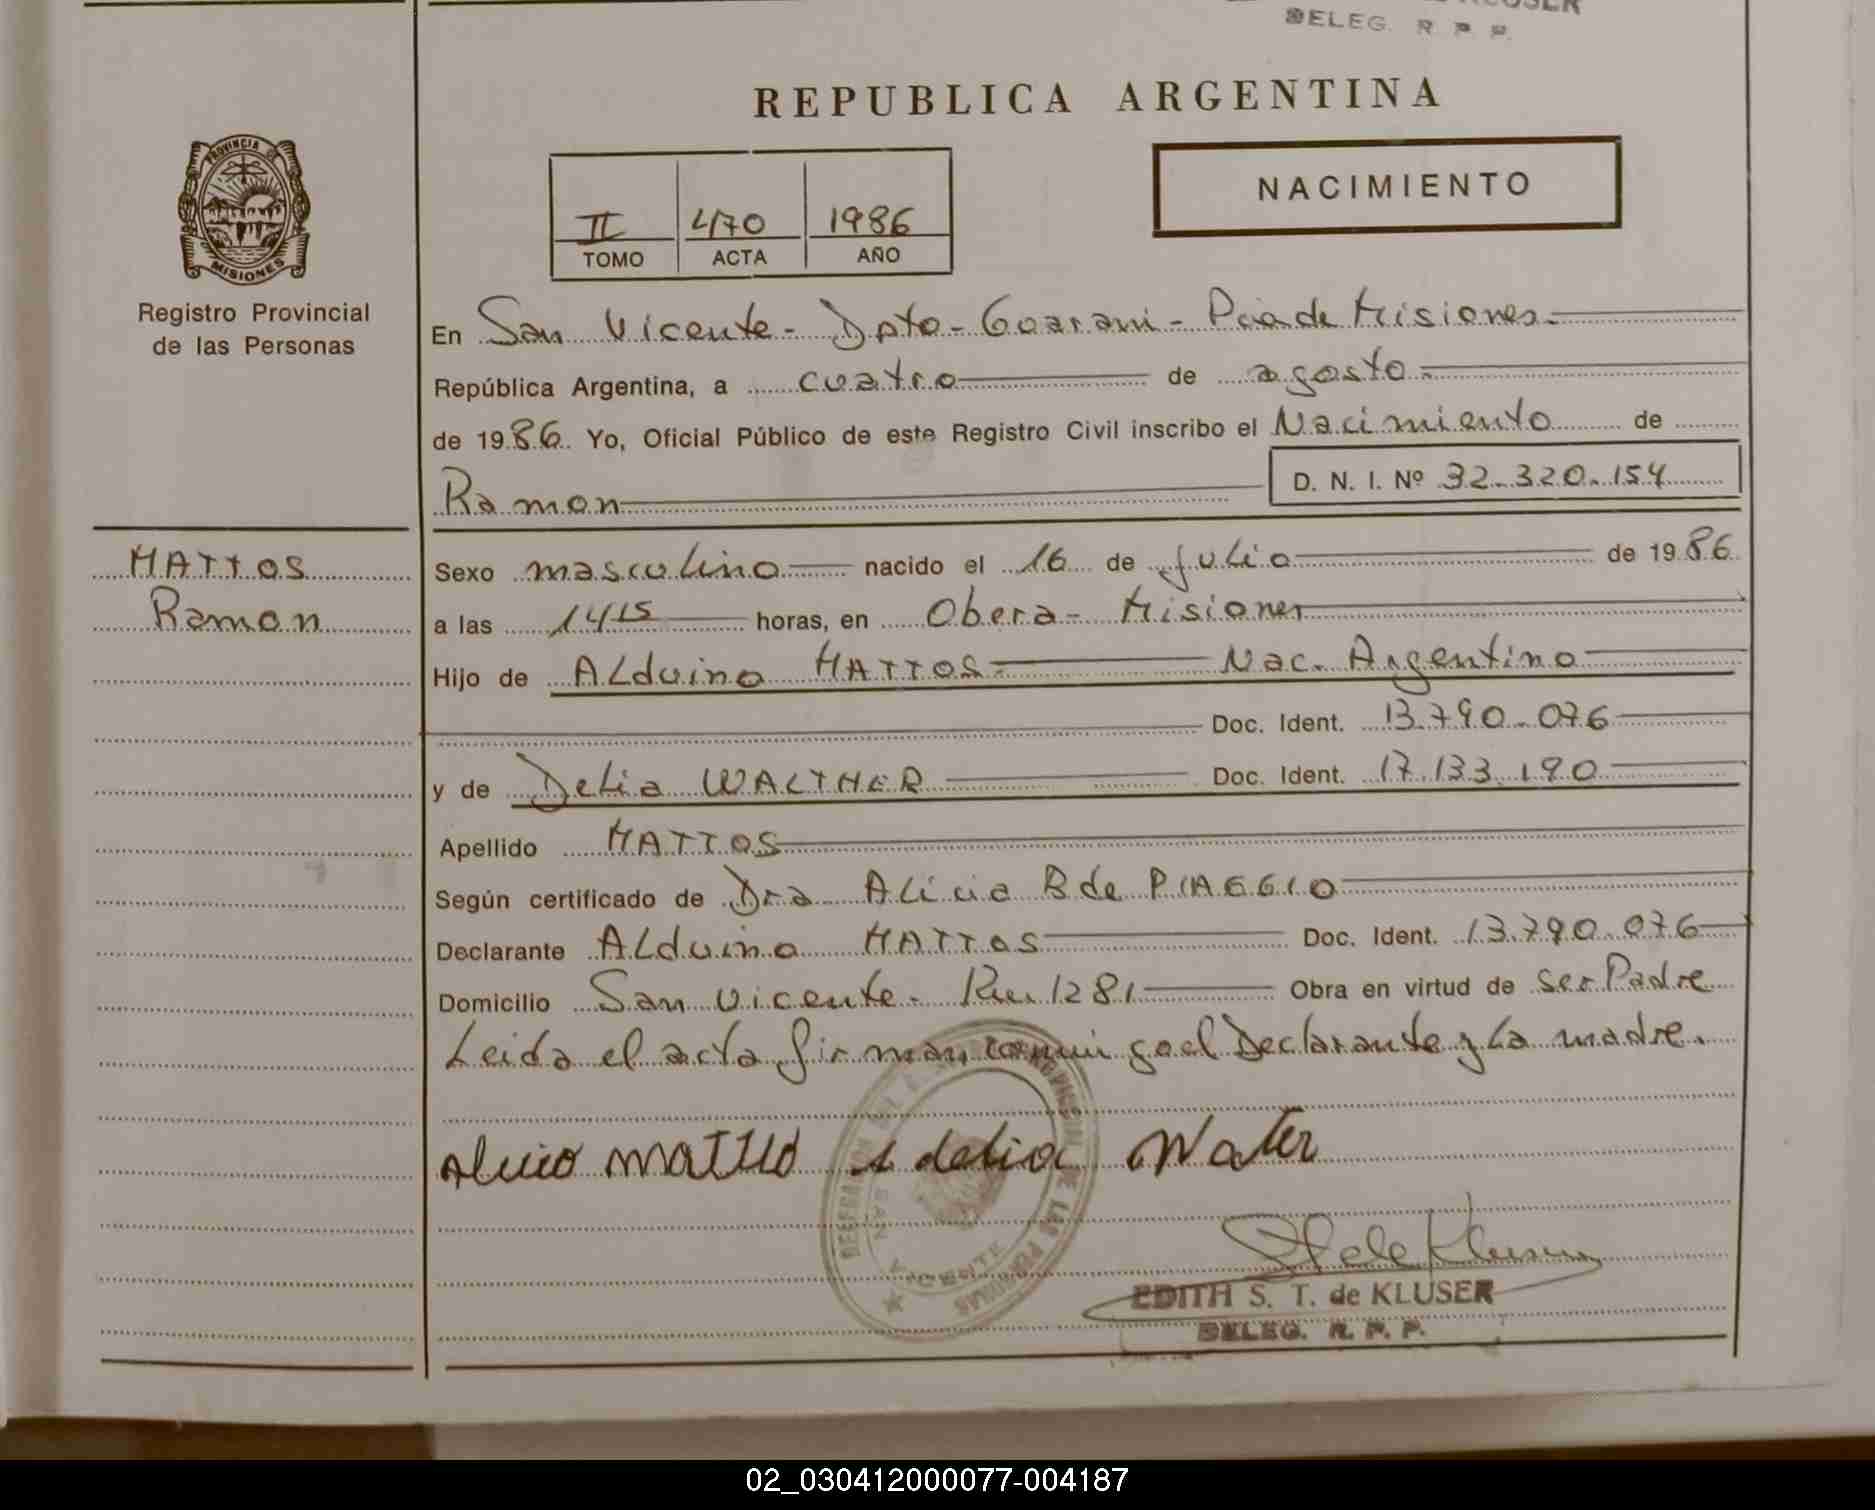 DELEG. R. P. P.
REPUBLICA ARGENTINA
PROVINCIA DE
MISIONES
Registro Provincial
de las Personas
II 470 1986
TOMO ACTA AÑO
NACIMIENTO
En San Vicente - Dpto - Guarani - Pcia de Misiones.
República Argentina, a cuatro de agosto.
de 1986. Yo, Oficial Público de este Registro Civil inscribo el Nacimiento de
Ramon D. N. I. Nº 32.320.154
MATTOS
Ramon
Sexo masculino nacido el 16 de julio de 1986
a las 14 15 horas, en Obera - Misiones
Hijo de Alduino MATTOS Nac. Argentino
Doc. Ident. 13.790.076
y de Delia WALTHER Doc. Ident. 17.133.190
Apellido MATTOS
Según certificado de Dra Alicia B de PIAGGIO
Declarante Alduino MATTOS Doc. Ident. 13.790.076
Domicilio San Vicente - 1281 Obra en virtud de ser Padre
Leida el acta firman conmigo el Declarante y la madre.
delia Walter
EDITH S. T. de KLUSER
DELEG. R. P. P.
02_030412000077-004187